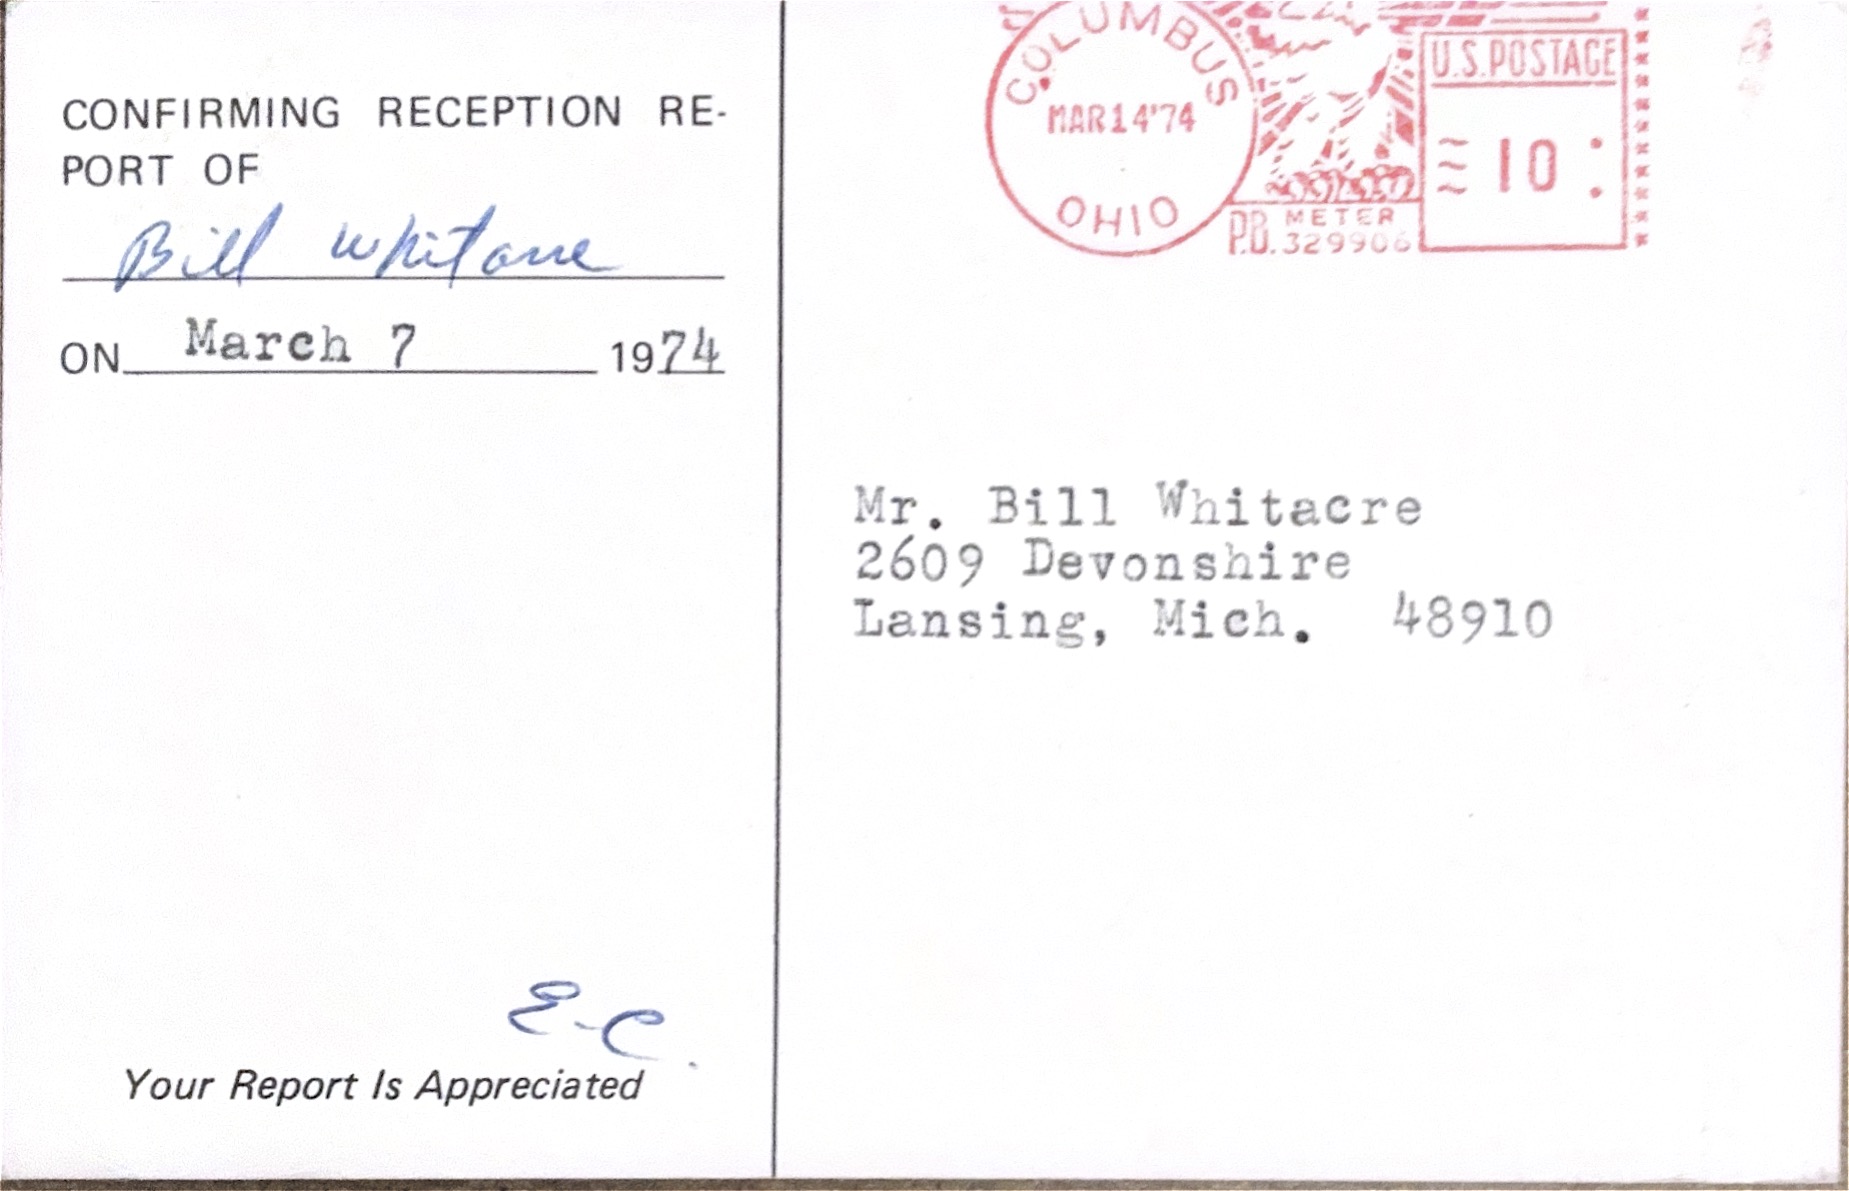 CONFIRMING RECEPTION RE-
PORT OF
Bill Whitacre
ON March 7 1974
E-C.
Your Report Is Appreciated
COLUMBUS
MAR14'74
OHIO
P.B. METER
329906
U.S.POSTAGE
10
Mr. Bill Whitacre
2609 Devonshire
Lansing, Mich. 48910